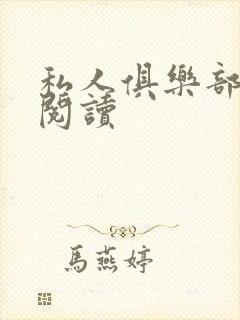 私人俱樂部
閱讀
馬燕婷